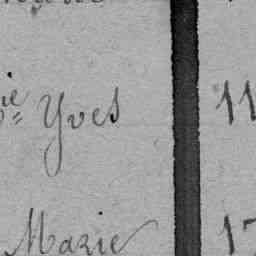 Yves 11
Marie 17